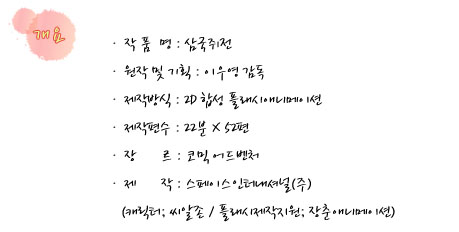 개요
· 작 품 명 : 삼국쥐전
· 원작 및 기획 : 이우영 감독
· 제작방식 : 2D 합성 플래시애니메이션
· 제작편수 : 22분 X 52편
· 장 르 : 코믹 어드벤처
· 제 작 : 스페이스인터내셔널(주)
(캐릭터; 씨알존 / 플래시제작지원; 장춘애니메이션)